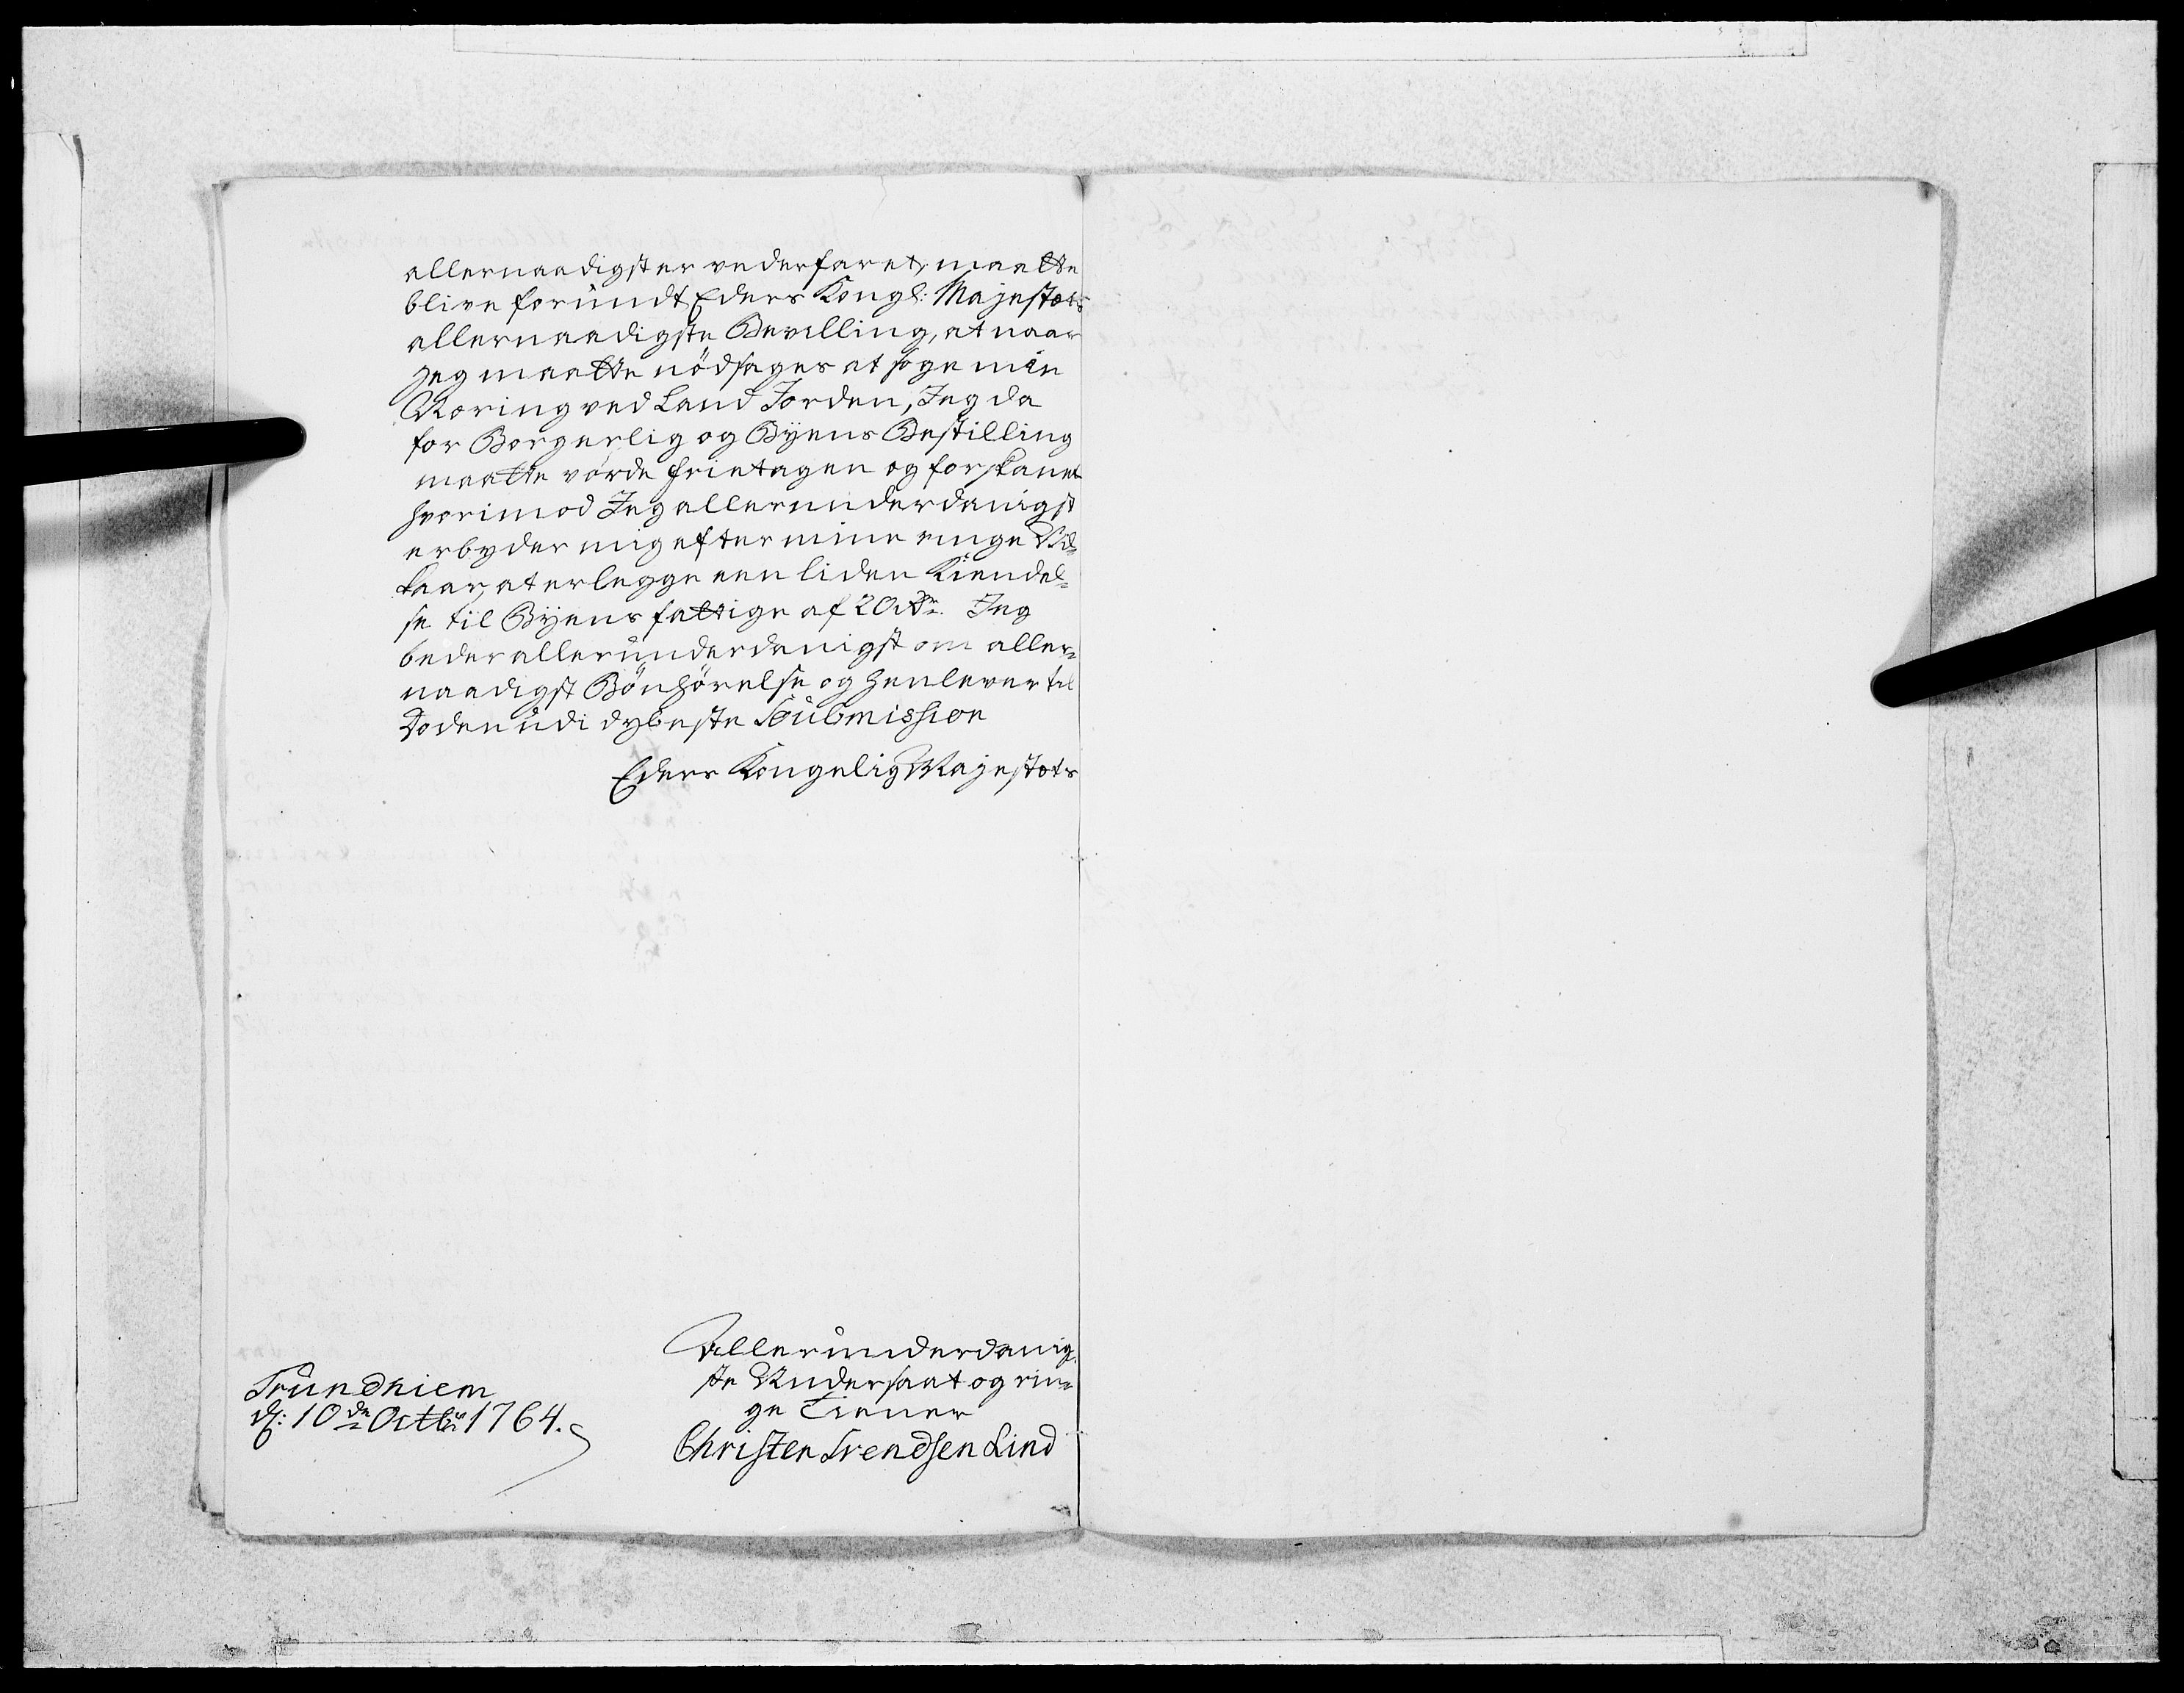 allernaadigster vederfaret, maatte
blive forundt Eders Kongl: Majestæts
allernaadigste Bevilling, at naar
Jeg maatte nödsages at søge min
Næring ved Land Jorden, Jeg da
for Borgerlig og Byens Bestilling
maatte vorde frietagen og forskaanet
hvorimod Jeg allerunderdanigst
erbyder mig efter mine ringe Vil-
kaar, at erlegge een liden Kiendel-
se til Byens fattige af 20 rdr. Jeg
beder allerunderdanigst om aller-
naadigst Bönhörelse og henlever til
Døden udi dybeste Soubmission
Eders Kongelig Majestæts
Allerunderdanig-
ste Undersaat og rin-
ge Tiener
Christen Svendsen Lind
Trundhiem
d: 10de Octbr 1764.